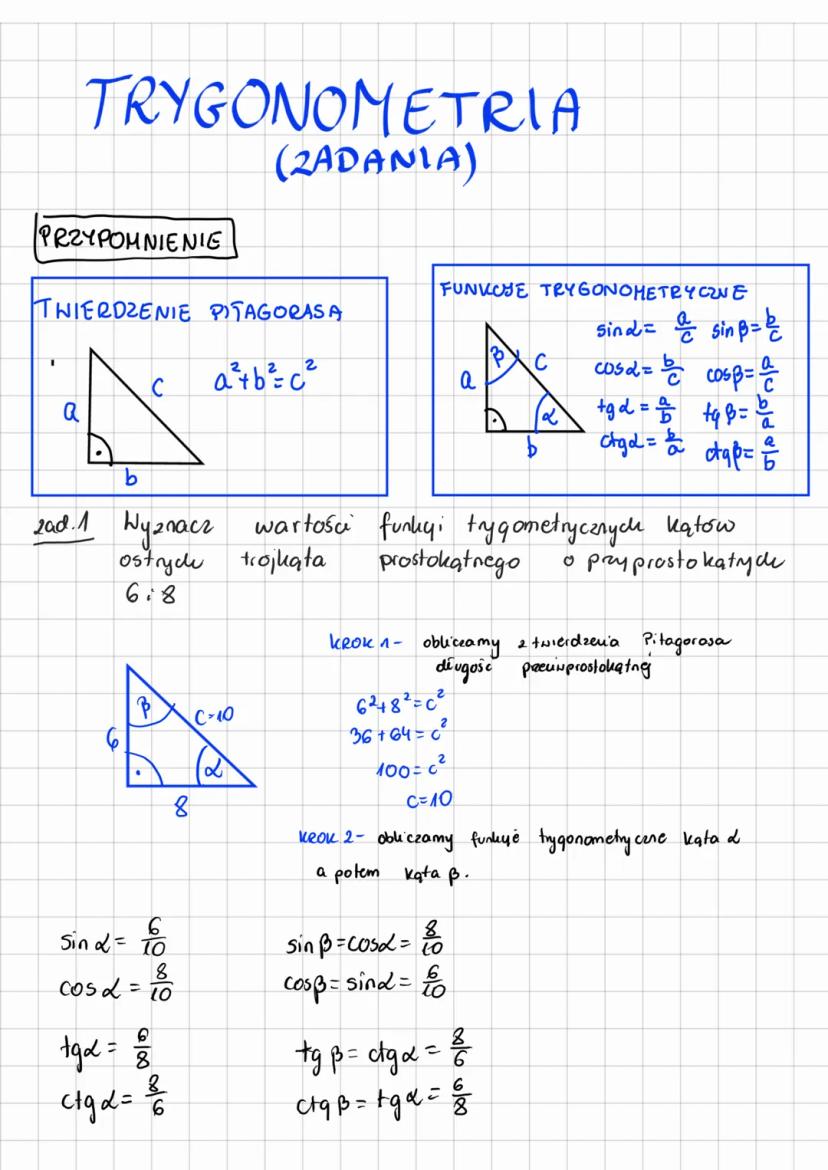 TRYGONOMETRIA
(ZADANIA)
PRZYPOMNIENIE
TWIERDZENIE PITAGORASA
a²+b²=c²
a
c
b
FUNKCJE TRYGONOMETRYCZNE
β
a
c
α
b
sinα= a/c sinβ= b/c
cosα= b/c cosβ= a/c
tgα = a/b tgβ= b/a
ctgα= b/a ctgβ= a/b
zad.1 Wyznacz wartości funkcji trygometrycznych kątów
ostrych trójkąta prostokątnego o przyprostokątych
6 i 8
KROK 1- obliczamy z twierdzenia Pitagorasa
długość przeciwprostokątnej
β
c=10
6
α
8
6²+8²=c²
36+64=c²
100=c²
c=10
KROK 2- obliczamy funkcje trygonometryczne kąta α
a potem kąta β.
sinα= 6/10 sinβ=cosα= 8/10
cosα = 8/10 cosβ= sinα= 6/10
tgα= 6/8 tgβ= ctgα= 8/6
ctgα= 8/6 ctgβ= tgα= 6/8